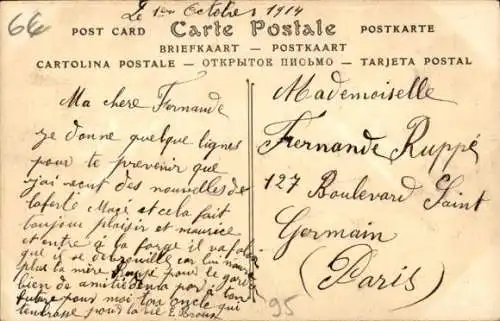 66
Le 1er Octobre 1914
Carte Postale
POST CARD
POSTKARTE
BRIEFKAART - POSTKAART
CARTOLINA POSTALE - ОТКРЫТОК ПИСЬМО - TARJETA POSTAL
Ma chere Fernande
je donne quelque lignes
pour te prevenir que
j'ai recut des nouvelles de
laferté Macé et cela fait
toujour plaisir et maurice
et entré a la forge il va falloir
que il se debrouille car lui
plus la mère Ruppé pour le garde
bien de amitié
pour moi ton oncle qui
t'embrasse pour la vie E. Broux
Mademoiselle
Fernande Ruppé
127 Boulevard Saint
Germain
(Paris)
95